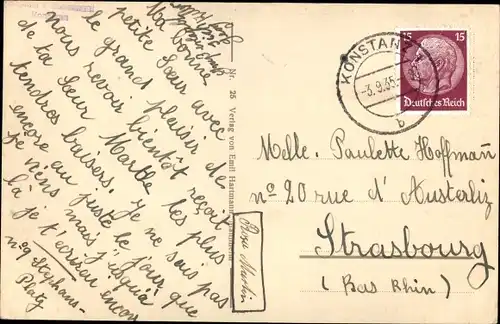 Ma bonne
petite Sœur avec
le grand plaisir de
nous revoir bientôt reçoit
de ta Sœur Marthe les plus
tendres baisers. Je ne sais pas
encore au juste le jour que
je viens mais jusqu'à
là je t'écrirai encore
n° 29 Stephans-
Platz
Nr. 25 Verlag von Emil Hartmann, Mannheim
Rosa Martin
KONSTANZ
-3.9.35.-
b
15 15
Deutsches Reich
Melle. Paulette Hoffmann
n° 20 rue d'Austerliz
Strasbourg
(Bas Rhin)